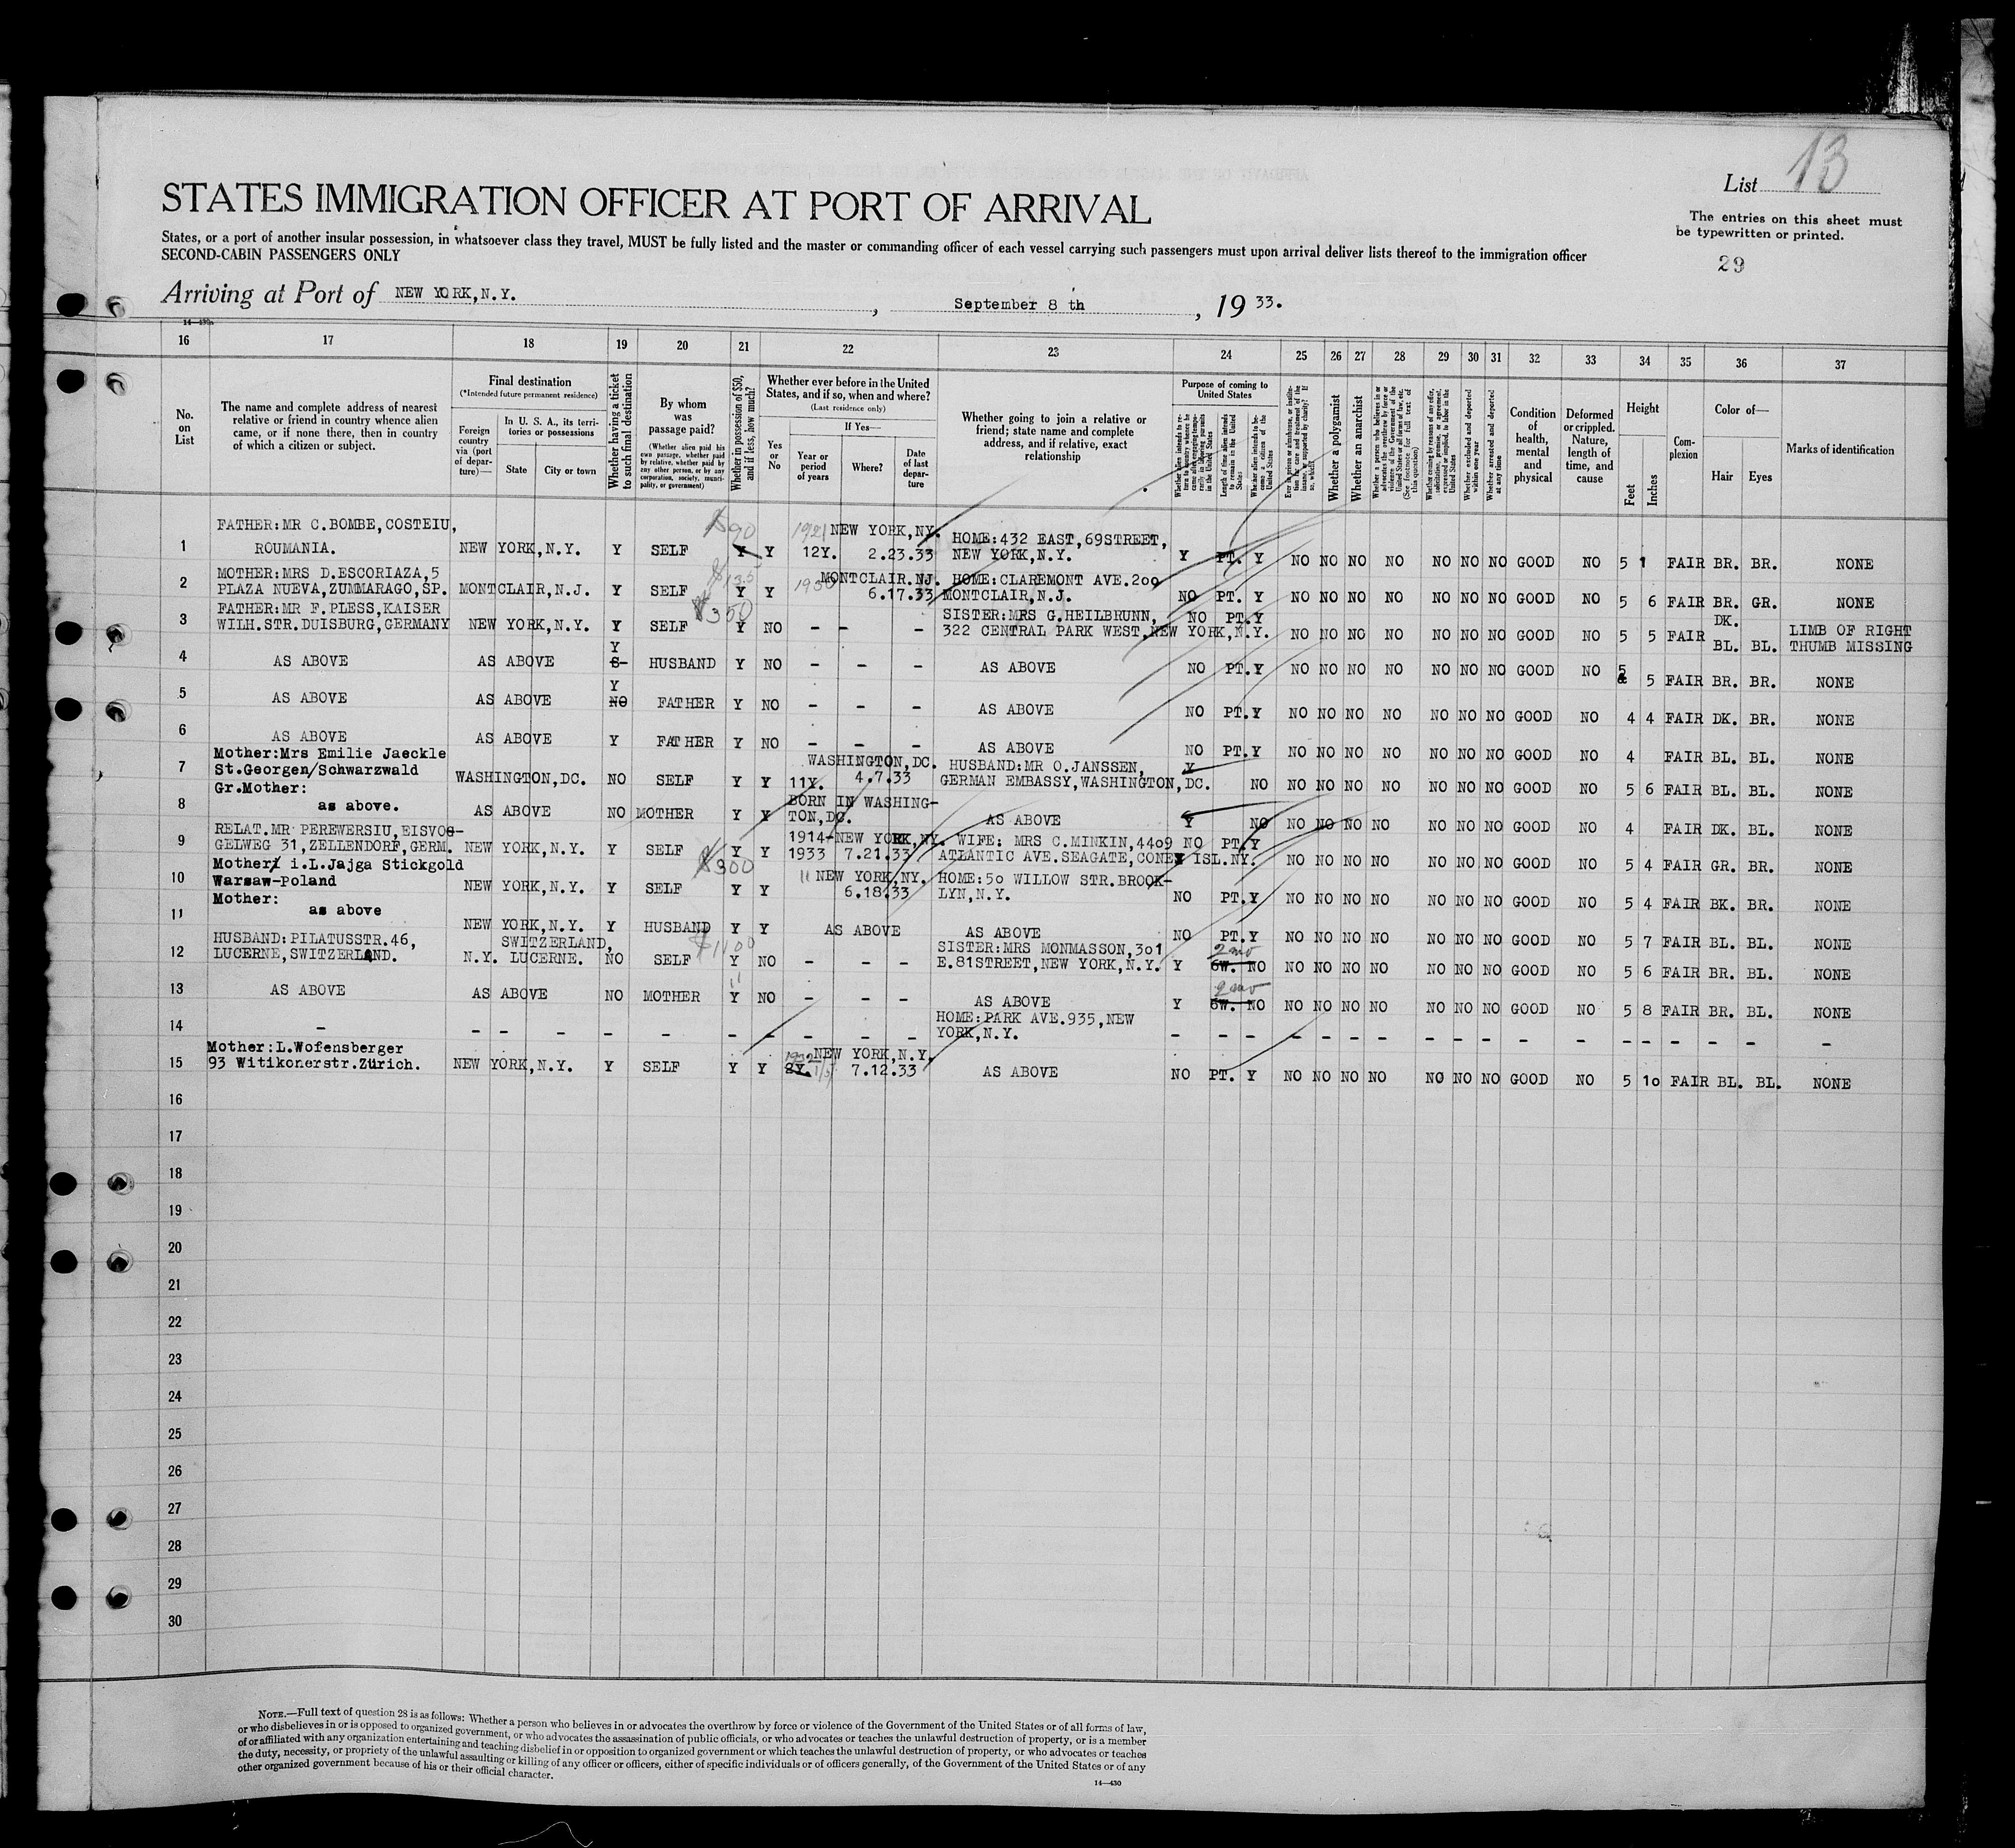 List 13
STATES IMMIGRATION OFFICER AT PORT OF ARRIVAL
The entries on this sheet must
be typewritten or printed.
States, or a port of another insular possession, in whatsoever class they travel, MUST be fully listed and the master or commanding officer of each vessel carrying such passengers must upon arrival deliver lists thereof to the immigration officer
SECOND-CABIN PASSENGERS ONLY
29
Arriving at Port of NEW YORK,N.Y. , September 8 th , 19 33.
14—430a
16 17 18 19 20 21 22 23 24 25 26 27 28 29 30 31 32 33 34 35 36 37
No. on List
The name and complete address of nearest relative or friend in country whence alien came, or if none there, then in country of which a citizen or subject.
Final destination
(*Intended future permanent residence)
Foreign country via (port of departure)—
In U. S. A., its territories or possessions
State
City or town
Whether having a ticket to such final destination
By whom was passage paid?
(Whether alien paid his own passage, whether paid by relative, whether paid by any other person, or by any corporation, society, municipality, or government)
Whether in possession of $50, and if less, how much?
Whether ever before in the United States, and if so, when and where?
(Last residence only)
Yes or No
If Yes—
Year or period of years
Where?
Date of last departure
Whether going to join a relative or friend; state name and complete address, and if relative, exact relationship
Purpose of coming to United States
Length of time alien intends to remain in the United States
Whether alien intends to become a citizen of the United States
Whether a polygamist
Whether an anarchist
Whether excluded and deported within one year
Whether arrested and deported at any time
Condition of health, mental and physical
Deformed or crippled. Nature, length of time, and cause
Height
Feet
Inches
Complexion
Color of—
Hair
Eyes
Marks of identification
1 FATHER:MR C.BOMBE,COSTEIU, ROUMANIA. NEW YORK,N.Y. Y SELF $90 Y Y 1921 12Y. NEW YORK,NY. 2.23.33 HOME:432 EAST,69STREET, NEW YORK,N.Y. Y PT. Y NO NO NO NO NO NO NO GOOD NO 5 1 FAIR BR. BR. NONE
2 MOTHER:MRS D.ESCORIAZA,5 PLAZA NUEVA,ZUMMARAGO,SP. MONTCLAIR,N.J. Y SELF Y Y 1930 MONTCLAIR.NJ. 6.17.33 HOME:CLAREMONT AVE.200 MONTCLAIR,N.J. NO PT. Y NO NO NO NO NO NO NO GOOD NO 5 6 FAIR BR. GR. NONE
3 FATHER:MR F.PLESS,KAISER WILH.STR.DUISBURG,GERMANY NEW YORK,N.Y. Y SELF $350 Y NO - - - SISTER:MRS G.HEILBRUNN, 322 CENTRAL PARK WEST,NEW YORK,N.Y. NO PT.Y NO NO NO NO NO NO NO GOOD NO 5 5 FAIR DK. BL. BL. LIMB OF RIGHT THUMB MISSING
4 AS ABOVE AS ABOVE Y HUSBAND Y NO - - - AS ABOVE NO PT.Y NO NO NO NO NO NO NO GOOD NO 5 5 FAIR BR. BR. NONE
5 AS ABOVE AS ABOVE Y NO FATHER Y NO - - - AS ABOVE NO PT.Y NO NO NO NO NO NO NO GOOD NO 4 4 FAIR DK. BR. NONE
6 AS ABOVE AS ABOVE Y FATHER Y NO - - - AS ABOVE NO PT.Y NO NO NO NO NO NO NO GOOD NO 4 FAIR BL. BL. NONE
7 Mother:Mrs Emilie Jaeckle St.Georgen/Schwarzwald WASHINGTON,DC. NO SELF Y Y 11Y. WASHINGTON,DC. 4.7.33 HUSBAND:MR O.JANSSEN, GERMAN EMBASSY,WASHINGTON,DC. Y NO NO NO NO NO NO NO NO GOOD NO 5 6 FAIR BL. BL. NONE
8 Gr.Mother: as above. AS ABOVE NO MOTHER Y Y BORN IN WASHING- TON,DC. AS ABOVE Y NO NO NO NO NO NO NO NO GOOD NO 4 FAIR DK. BL. NONE
9 RELAT.MR PEREWERSIU,EISVOG- GELWEG 31,ZELLENDORF,GERM. NEW YORK,N.Y. Y SELF Y Y 1914- 1933 NEW YORK,NY. 7.21.33 WIFE: MRS C.MINKIN,4409 ATLANTIC AVE.SEAGATE,CONEY ISL.NY. NO PT.Y NO NO NO NO NO NO NO GOOD NO 5 4 FAIR GR. BR. NONE
10 Mother: i.L.Jajga Stickgold Warsaw-Poland NEW YORK,N.Y. Y SELF $300 Y Y 11 NEW YORK,NY. 6.18.33 HOME:50 WILLOW STR.BROOK- LYN,N.Y. NO PT.Y NO NO NO NO NO NO NO GOOD NO 5 4 FAIR BK. BR. NONE
11 Mother: as above NEW YORK,N.Y. Y HUSBAND Y Y AS ABOVE AS ABOVE NO PT.Y NO NO NO NO NO NO NO GOOD NO 5 7 FAIR BL. BL. NONE
12 HUSBAND:PILATUSSTR.46, LUCERNE,SWITZERLAND. SWITZERLAND, N.Y. LUCERNE. NO SELF $1100 Y NO - - - SISTER:MRS MONMASSON,301 E.81STREET,NEW YORK,N.Y. Y 2 mo 6W. NO NO NO NO NO NO NO NO GOOD NO 5 6 FAIR BR. BL. NONE
13 AS ABOVE AS ABOVE NO MOTHER " Y NO - - - AS ABOVE Y 2 mo 6W. NO NO NO NO NO NO NO NO GOOD NO 5 8 FAIR BR. BL. NONE
14 - - - - - - - - - - - HOME:PARK AVE.935,NEW YORK,N.Y. - - - - - - - - - - - - - - - - - -
15 Mother:L.Wofensberger 93 Witikonerstr.Zürich. NEW YORK,N.Y. Y SELF Y Y 1932 2Y. NEW YORK,N.Y. 7.12.33 AS ABOVE NO PT. Y NO NO NO NO NO NO NO GOOD NO 5 10 FAIR BL. BL. NONE
16
17
18
19
20
21
22
23
24
25
26
27
28
29
30
NOTE.—Full text of question 28 is as follows: Whether a person who believes in or advocates the overthrow by force or violence of the Government of the United States or of all forms of law,
or who disbelieves in or is opposed to organized government, or who advocates the assassination of public officials, or who advocates or teaches the unlawful destruction of property, or is a member
of or affiliated with any organization entertaining and teaching disbelief in or opposition to organized government or which teaches the unlawful destruction of property, or who advocates or teaches
the duty, necessity, or propriety of the unlawful assaulting or killing of any officer or officers, either of specific individuals or of officers generally, of the Government of the United States or of any
other organized government because of his or their official character.
14—430